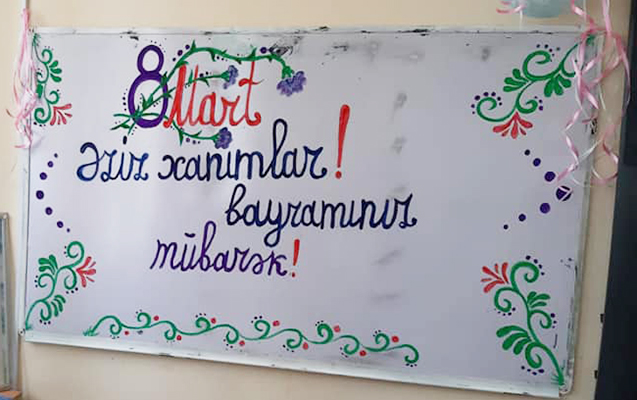 8 Mart
Əziz xanımlar!
bayramınız
mübarək!